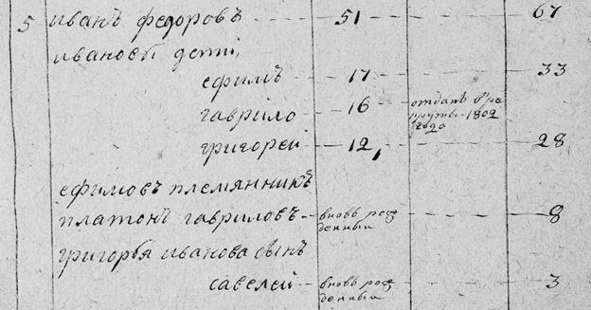 5 иванъ федоровъ 51 67
ивановы дети,
ефимъ 17 33
гаврило 16 отданъ в ре
круты 1802
года
григорей 12, 28
ефимовъ племянникъ
платонъ гавриловъ вновь рож 8
денный
григорья иванова сынъ
савелей вновь рож 3
денный